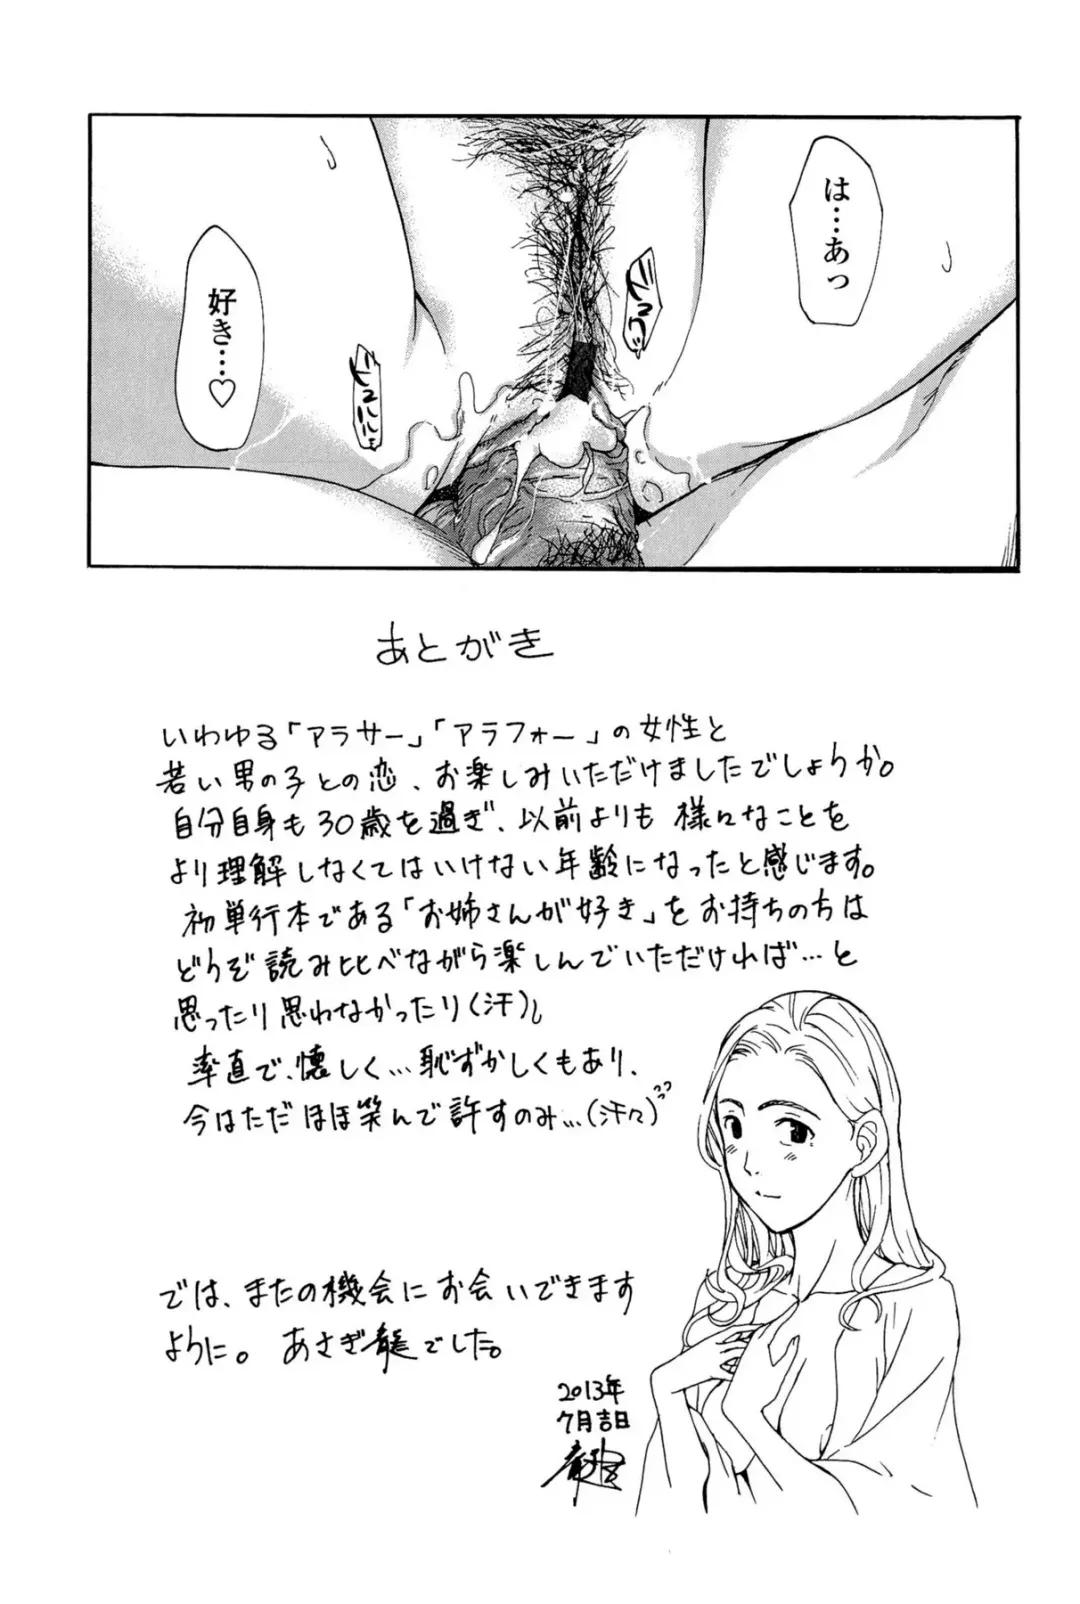 は…あっ
ドクッ
好き…♡
ドュルルッ
あとがき
いわゆる「アラサー」「アラフォー」の女性と
若い男の子との恋、お楽しみいただけましたでしょうか。
自分自身も30歳を過ぎ、以前よりも様々なことを
より理解しなくてはいけない年齢になったと感じます。
初単行本である「お姉さんが好き」をお持ちの方は
どうぞ読み比べながら楽しんでいただければ…と
思ったり思わなかったり(汗)。
率直で、懐しく…恥ずかしくもあり、
今はただほほ笑んで許すのみ…(汗々)
では、またの機会にお会いできます
ように。あさぎ龍でした。
2013年
7月吉日